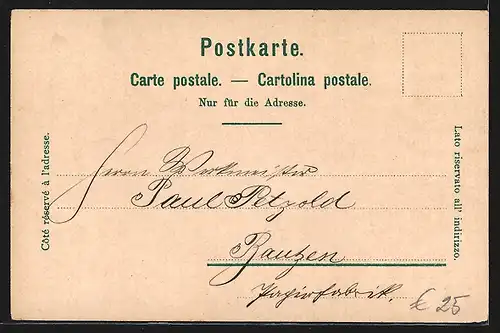 Postkarte.
Carte postale. — Cartolina postale.
Nur für die Adresse.
Côté réservé à l'adresse.
Lato riservato all' indirizzo.
Herrn Werkmeister
Paul Petzold
Bautzen
Papierfabrik
€ 25